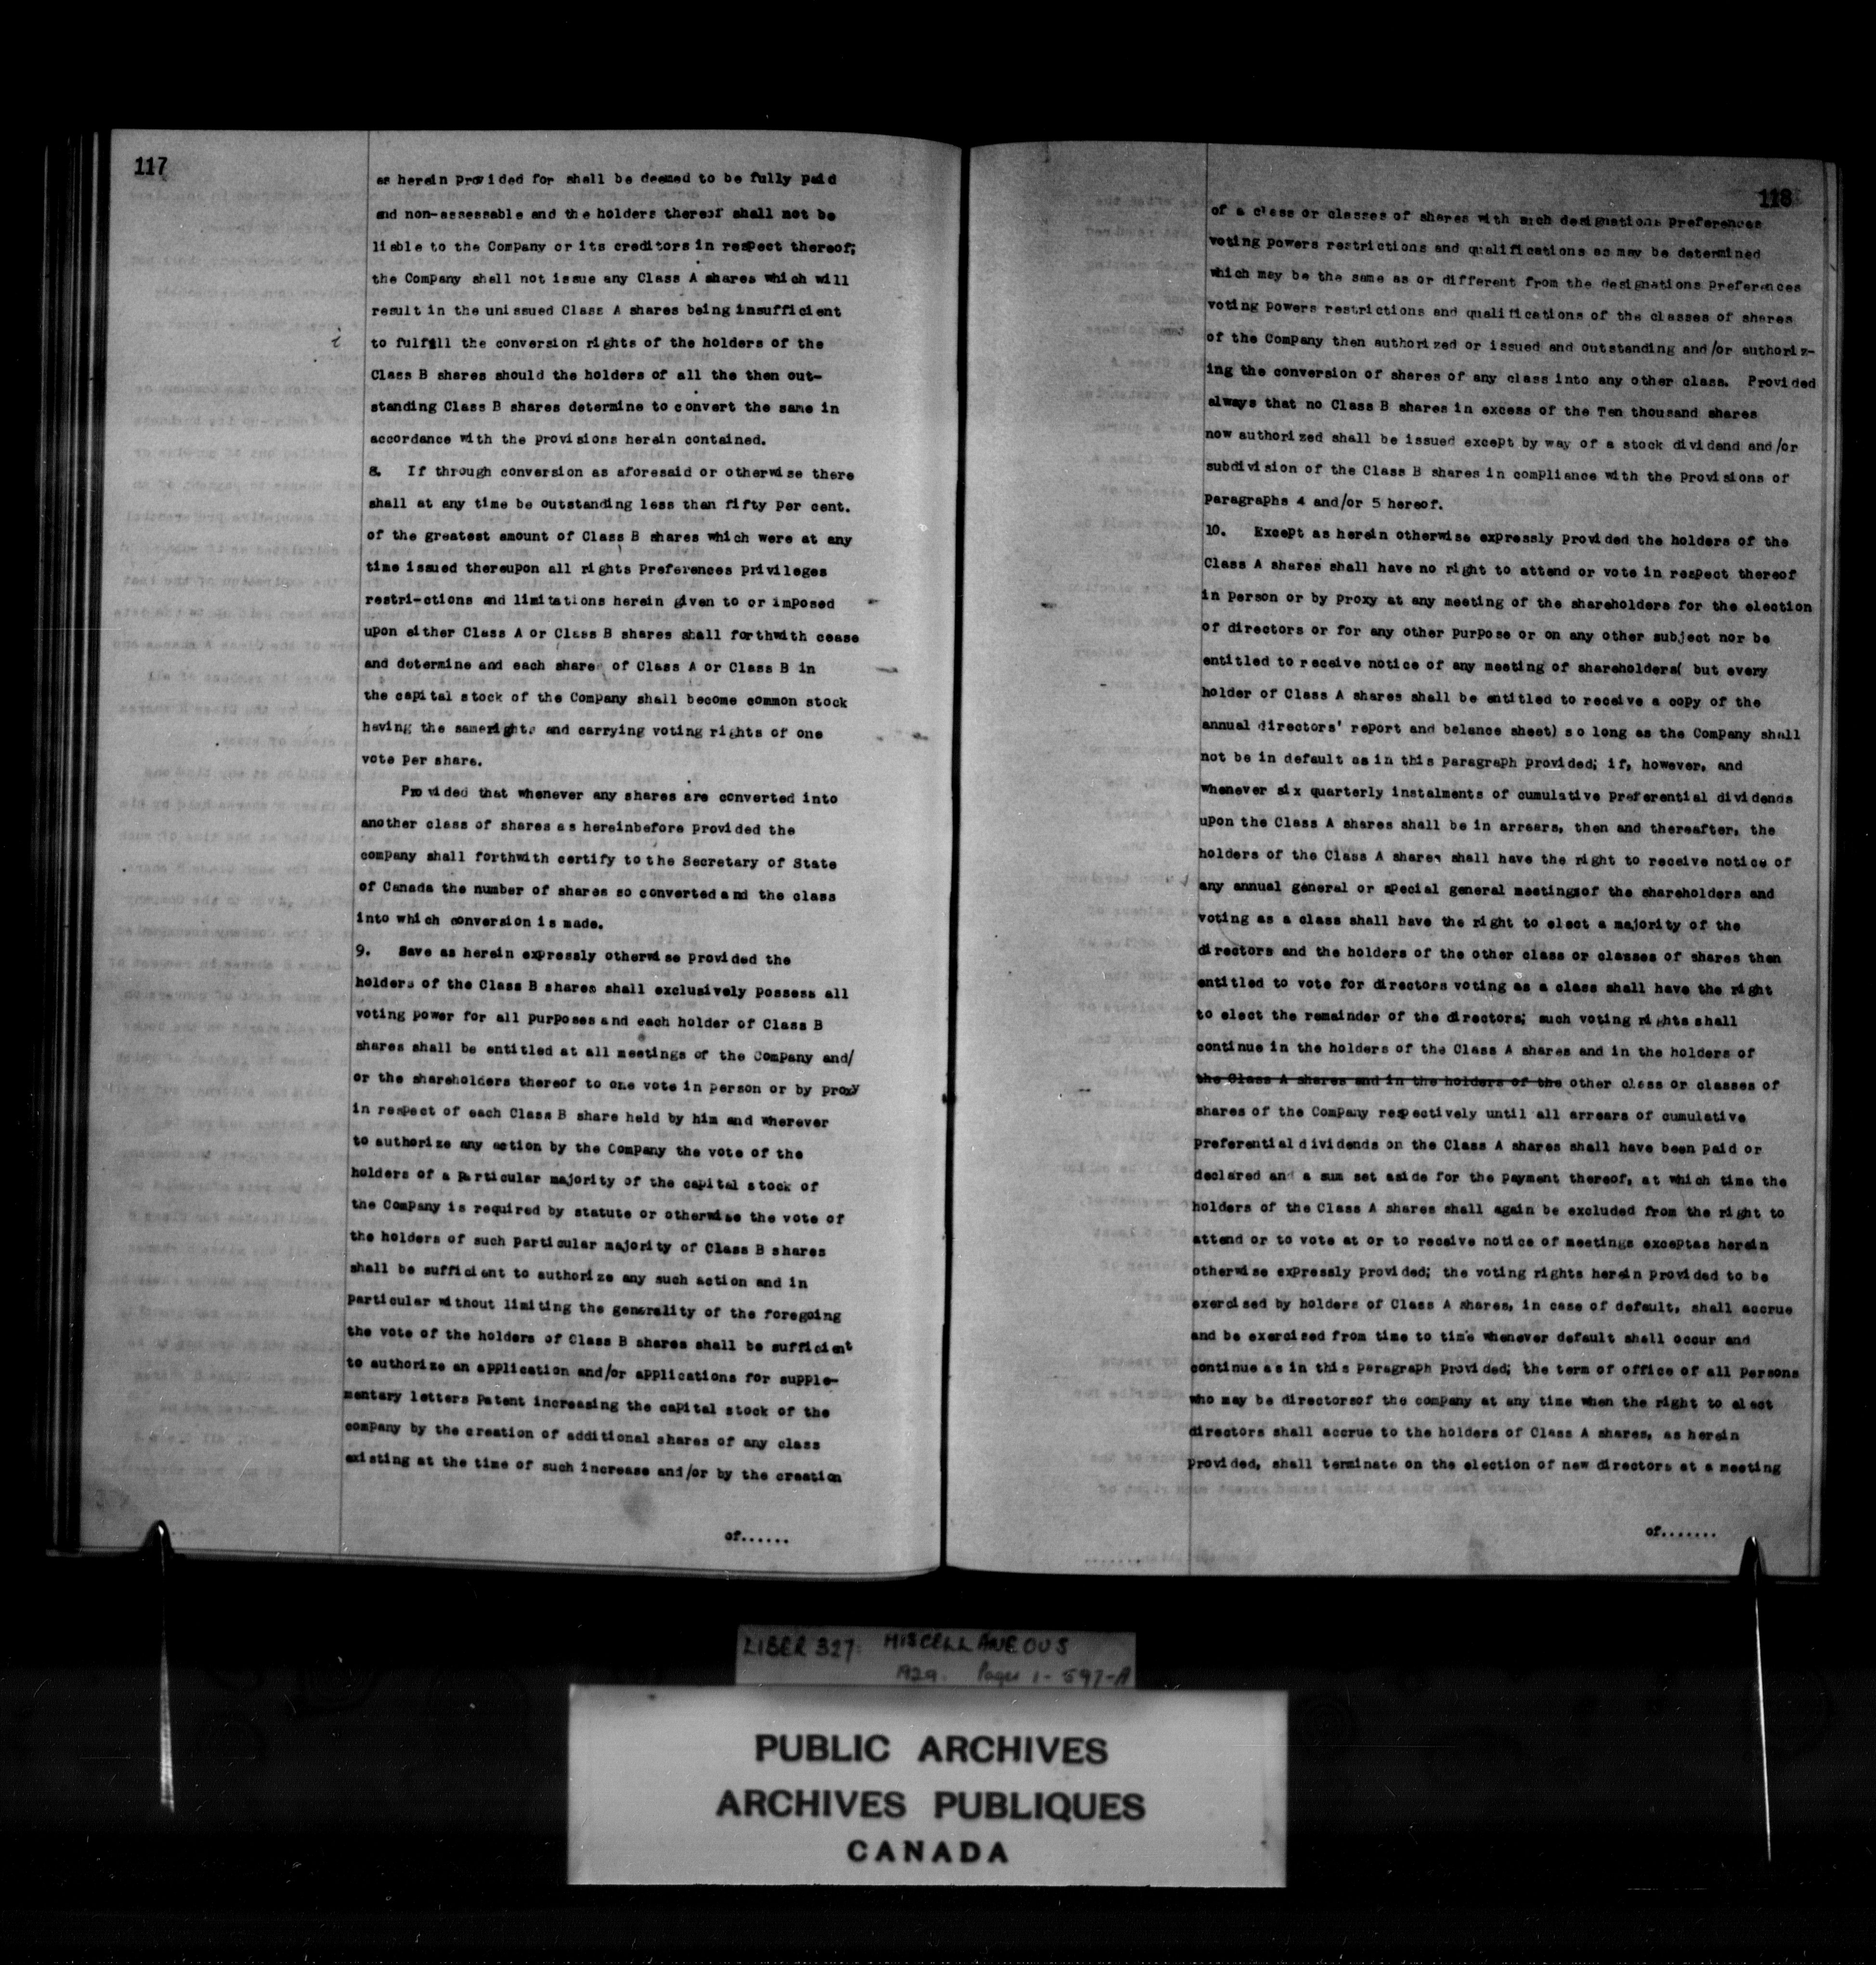 117
as herein provided for shall be deemed to be fully paid
and non-assessable and the holders thereof shall not be
liable to the Company or its creditors in respect thereof;
the Company shall not issue any Class A shares which will
result in the unissued Class A shares being insufficient
i
to fulfill the conversion rights of the holders of the
Class B shares should the holders of all the then out-
standing Class B shares determine to convert the same in
accordance with the provisions herein contained.
8. If through conversion as aforesaid or otherwise there
shall at any time be outstanding less than fifty per cent.
of the greatest amount of Class B shares which were at any
time issued thereupon all rights preferences privileges
restri-ctions and limitations herein given to or imposed
upon either Class A or Class B shares shall forthwith cease
and determine and each share of Class A or Class B in
the capital stock of the Company shall become common stock
having the same rights and carrying voting rights of one
vote per share.
Provided that whenever any shares are converted into
another class of shares as hereinbefore provided the
company shall forthwith certify to the Secretary of State
of Canada the number of shares so converted and the class
into which conversion is made.
9. Save as herein expressly otherwise provided the
holders of the Class B shares shall exclusively possess all
voting power for all purposes and each holder of Class B
shares shall be entitled at all meetings of the Company and/
or the shareholders thereof to one vote in person or by proxy
in respect of each Class B share held by him and wherever
to authorize any action by the Company the vote of the
holders of a particular majority of the capital stock of
the Company is required by statute or otherwise the vote of
the holders of such particular majority of Class B shares
shall be sufficient to authorize any such action and in
particular without limiting the generality of the foregoing
the vote of the holders of Class B shares shall be sufficient
to authorize an application and/or applications for supple-
mentary letters patent increasing the capital stock of the
company by the creation of additional shares of any class
existing at the time of such increase and/or by the creation
of......
118
of a class or classes of shares with such designations preferences
voting powers restrictions and qualifications as may be determined
which may be the same as or different from the designations preferences
voting powers restrictions and qualifications of the classes of shares
of the Company then authorized or issued and outstanding and/or authoriz-
ing the conversion of shares of any class into any other class. Provided
always that no Class B shares in excess of the Ten thousand shares
now authorized shall be issued except by way of a stock dividend and/or
subdivision of the Class B shares in compliance with the provisions of
paragraphs 4 and/or 5 hereof.
10. Except as herein otherwise expressly provided the holders of the
Class A shares shall have no right to attend or vote in respect thereof
in person or by proxy at any meeting of the shareholders for the election
of directors or for any other purpose or on any other subject nor be
entitled to receive notice of any meeting of shareholders( but every
holder of Class A shares shall be entitled to receive a copy of the
annual directors' report and balance sheet) so long as the Company shall
not be in default as in this paragraph provided; if, however, and
whenever six quarterly instalments of cumulative preferential dividends
upon the Class A shares shall be in arrears, then and thereafter, the
holders of the Class A shares shall have the right to receive notice of
any annual general or special general meetings of the shareholders and
voting as a class shall have the right to elect a majority of the
directors and the holders of the other class or classes of shares then
entitled to vote for directors voting as a class shall have the right
to elect the remainder of the directors; such voting rights shall
continue in the holders of the Class A shares and in the holders of
the Class A shares and in the holders of the other class or classes of
shares of the Company respectively until all arrears of cumulative
preferential dividends on the Class A shares shall have been paid or
declared and a sum set aside for the payment thereof, at which time the
holders of the Class A shares shall again be excluded from the right to
attend or to vote at or to receive notice of meetings exceptas herein
otherwise expressly provided; the voting rights herein provided to be
exercised by holders of Class A shares, in case of default, shall accrue
and be exercised from time to time whenever default shall occur and
continue as in this paragraph provided; the term of office of all persons
who may be directorsof the company at any time when the right to elect
directors shall accrue to the holders of Class A shares, as herein
provided, shall terminate on the election of new directors at a meeting
of.......
LIBER 327. MISCELLANEOUS
1929. Pages 1-597-A
PUBLIC ARCHIVES
ARCHIVES PUBLIQUES
CANADA